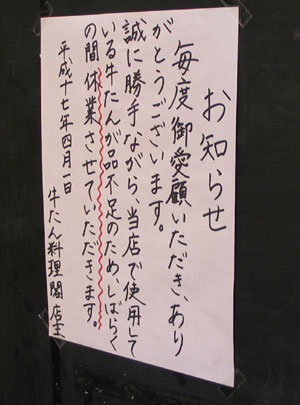 お知らせ
毎度御愛顧いただき、あり
がとうございます。
誠に勝手ながら、当店で使用して
いる牛たんが品不足のため、しばらく
の間休業させていただきます。
平成十七年四月一日
牛たん料理閣店主